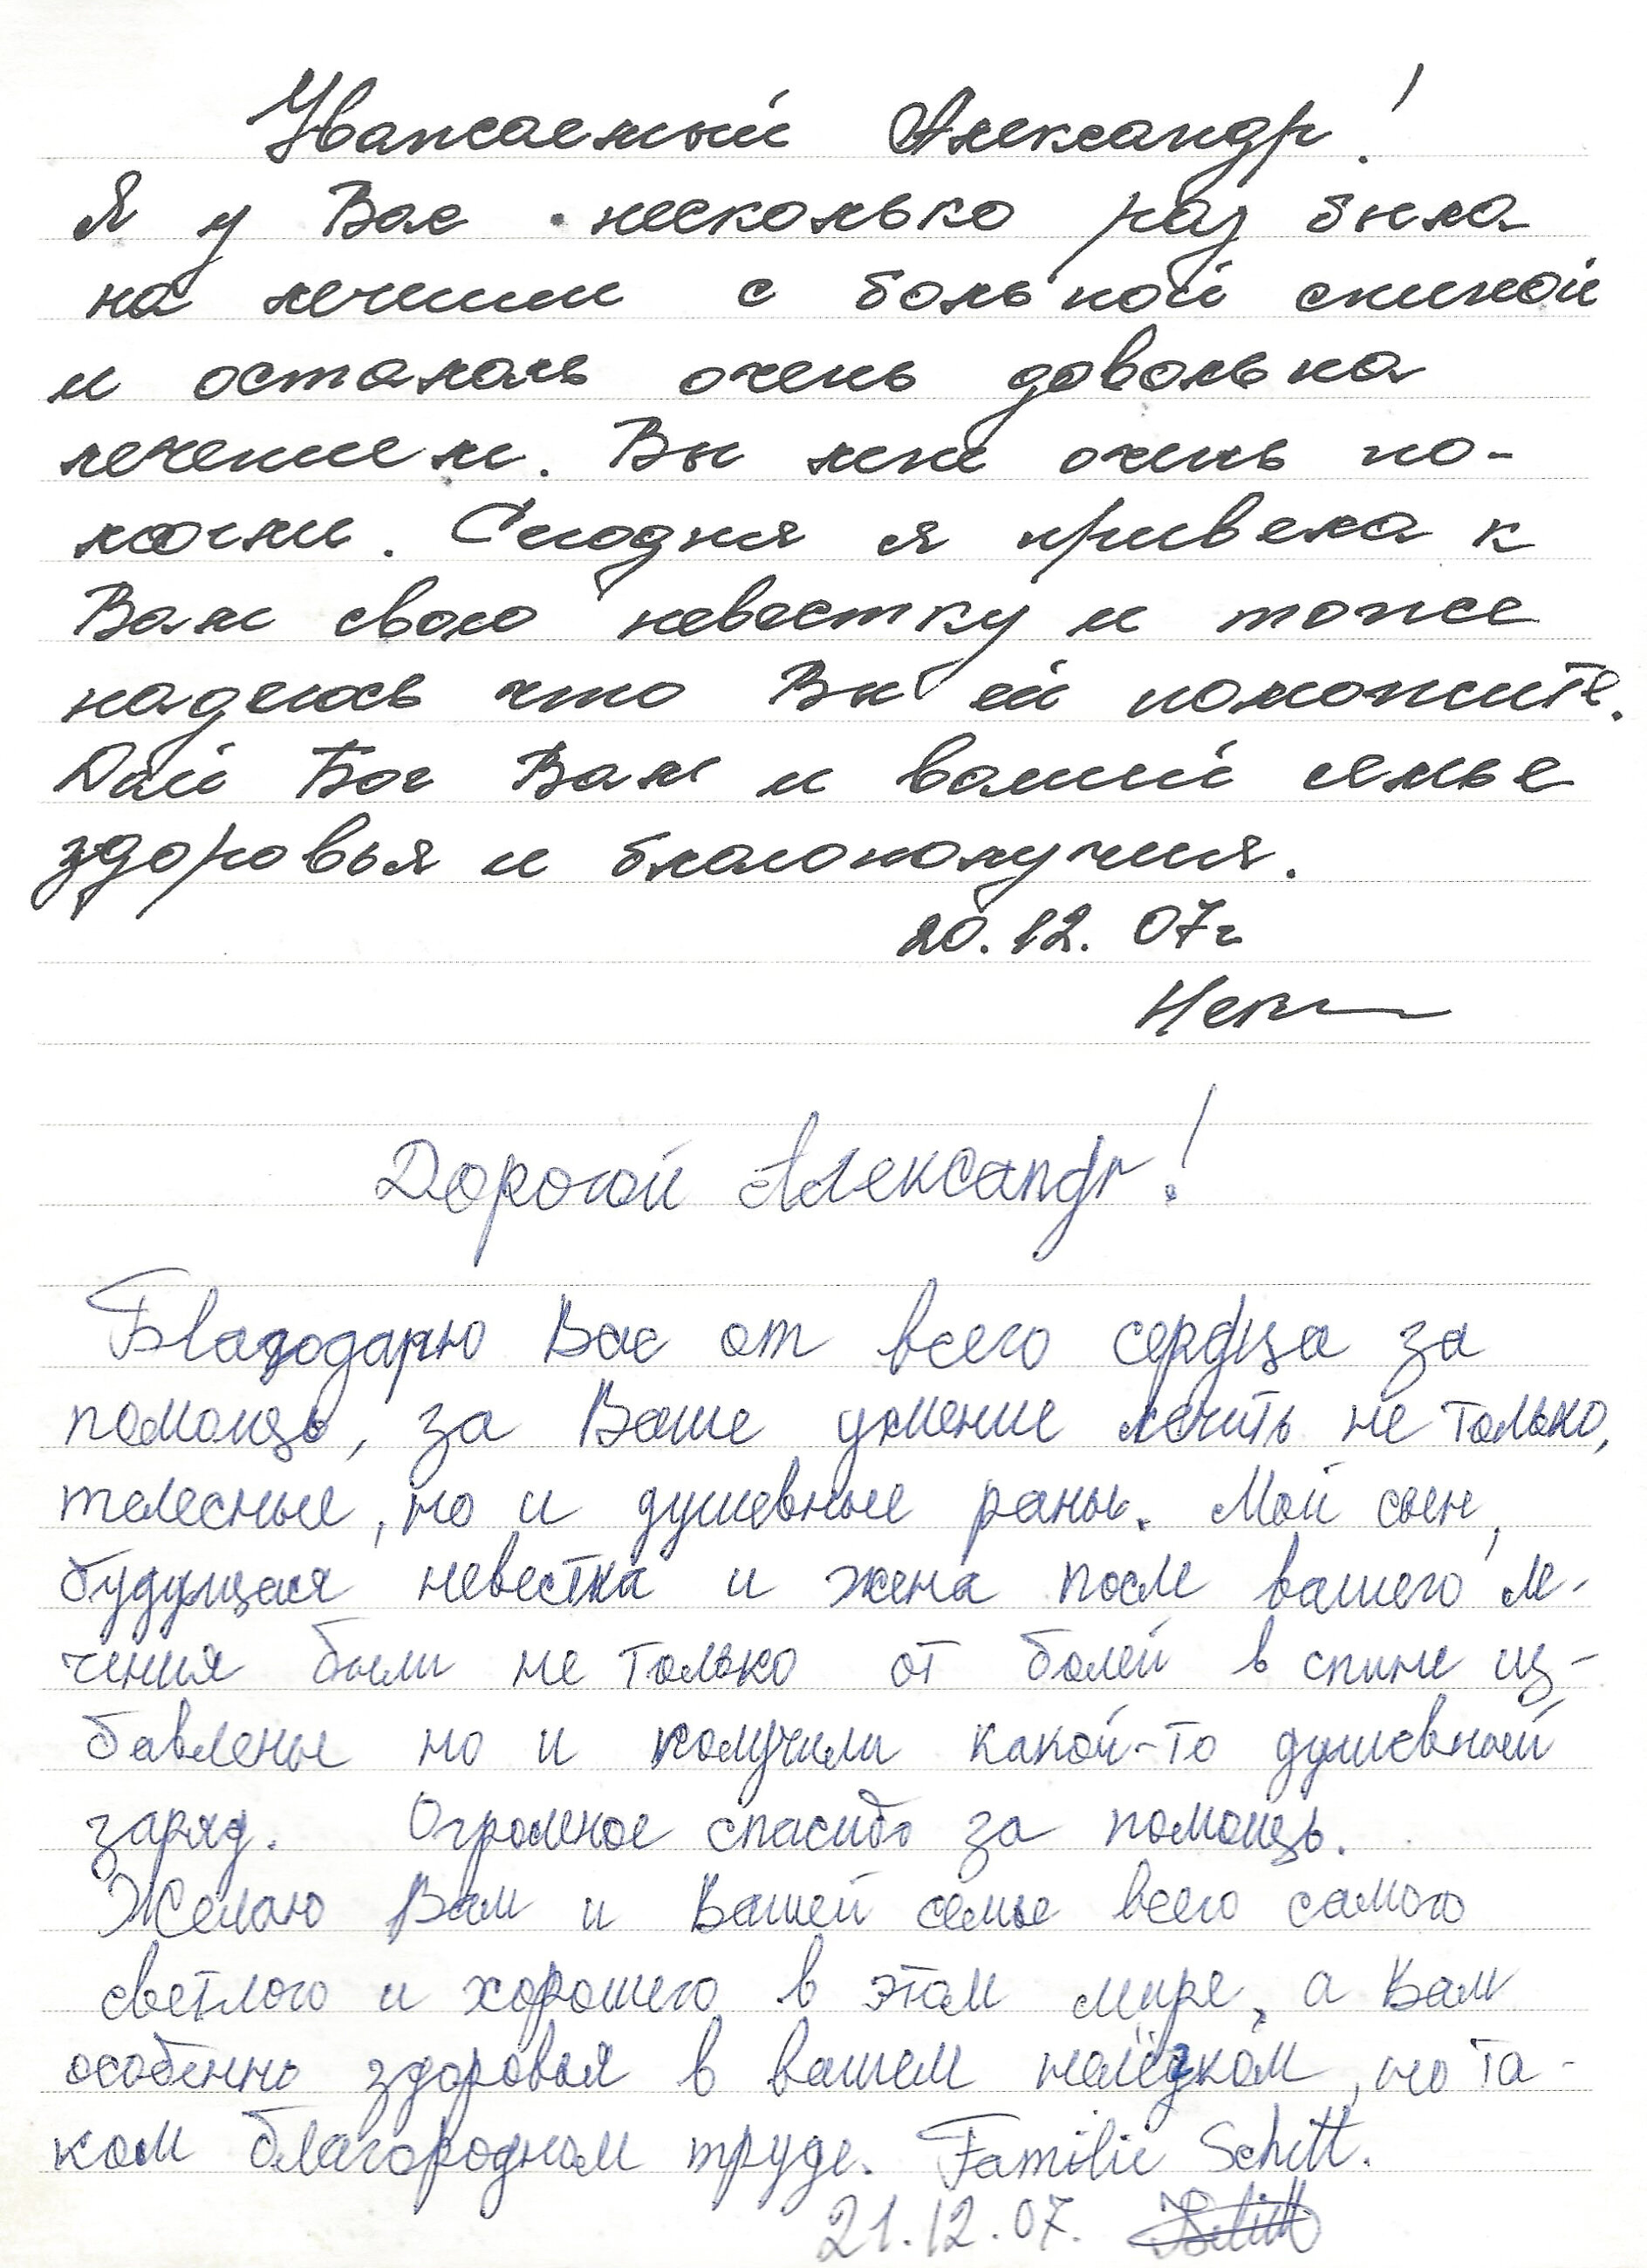 Уважаемый Александр!
Я у Вас несколько раз была
на лечении с больной спиной
и осталась очень довольна
лечением. Вы мне очень по-
могли. Сегодня я привела к
Вам свою невестку и тоже
надеюсь что Вы ей поможите.
Дай Бог Вам и вашей семье
здоровья и благополучия.
20.12.07г
Дорогой Александр!
Благодарю Вас от всего сердца за
помощь, за Ваше умение лечить не только,
телесные, но и душевные раны. Мой сын,
будущая невестка и жена после вашего ле-
чения были не только от болей в спине из-
бавлены но и получили какой-то душевный
заряд. Огромное спасибо за помощь.
Желаю Вам и Вашей семье всего самого
светлого и хорошего в этом мире, а Вам
особенно здоровья в вашем нелёгком, но та-
ком благородном труде. Familie Schitt.
21.12.07.